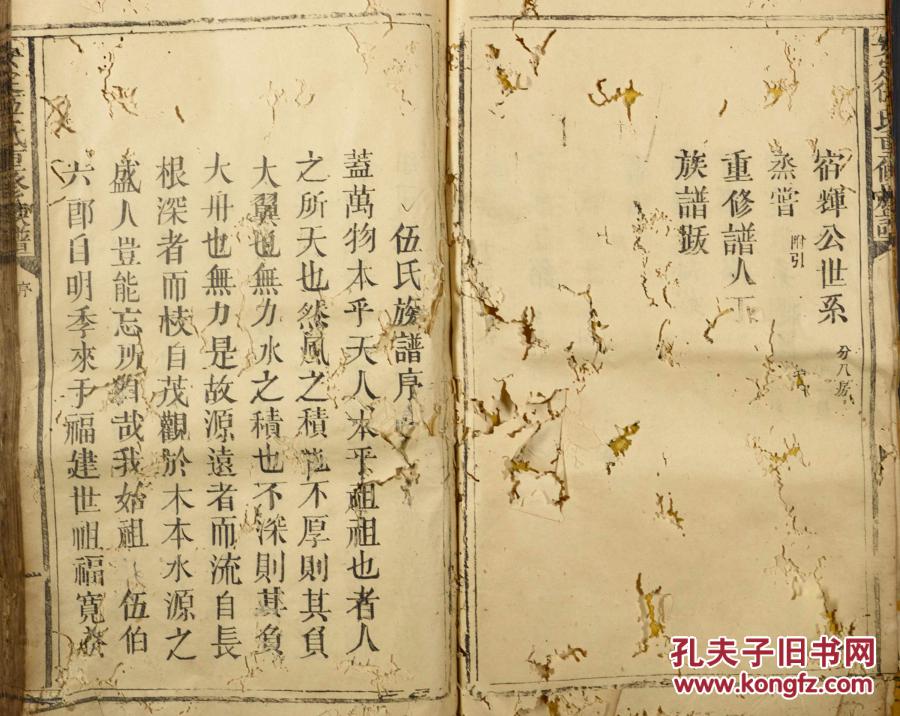 宿輝公世系 分八房
蒸嘗 附引
重修譜人丁
族譜跋
伍氏族譜序
蓋萬物本乎天人本乎祖祖也者人
之所天也然風之積也不厚則其負
大翼也無力水之積也不深則其負
大舟也無力是故源遠者而流自長
根深者而枝自茂觀於木本水源之
盛人豈能忘所自哉我始祖 伍伯
六郎自明季來于福建世祖福寬
序
孔夫子旧书网
www.kongfz.com